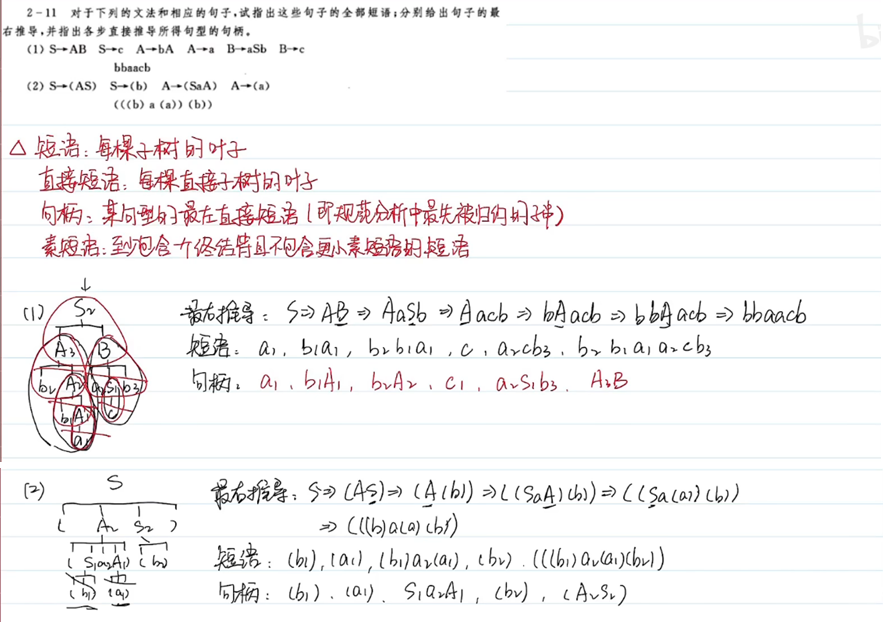 2-11 对于下列的文法和相应的句子,试指出这些句子的全部短语;分别给出句子的最
右推导,并指出各步直接推导所得句型的句柄。
(1) S→AB S→c A→bA A→a B→aSb B→c
bbaacb
(2) S→(AS) S→(b) A→(SaA) A→(a)
(((b) a (a)) (b))
△ 短语:每棵子树的叶子
直接短语:每棵直接子树的叶子
句柄:某句型的最左直接短语(即规范分析中最先被归约的子串)
素短语:至少包含一个终结符且不包含更小素短语的短语
(1) 最右推导: S⇒AB⇒AaSb⇒Aacb⇒bAacb⇒bbAacb⇒bbaacb
短语: a₁、b₁a₁、b₂b₁a₁、c、a₂cb₃、b₂b₁a₁a₂cb₃
句柄: a₁、b₁A₁、b₂A₂、c₁、a₂S₁b₃、A₃B
S₂
A₃ B
b₂ A₂ a₂ S₁ b₃
b₁ A₁ c
a₁
(2) 最右推导: S⇒(AS)⇒(A(b))⇒((SaA)(b))⇒((Sa(a))(b))
⇒(((b)a(a)(b))
短语: (b₁),(a₁),(b₁)a₂(a₁),(b₂).(((b₁)a₂(a₁)(b₂))
句柄: (b₁)、(a₁)、S₁a₂A₁,(b₂),(A₂S₂)
S
( A₂ S₂ )
( S₁a₂A₁) (b₂)
(b₁) (a₁)